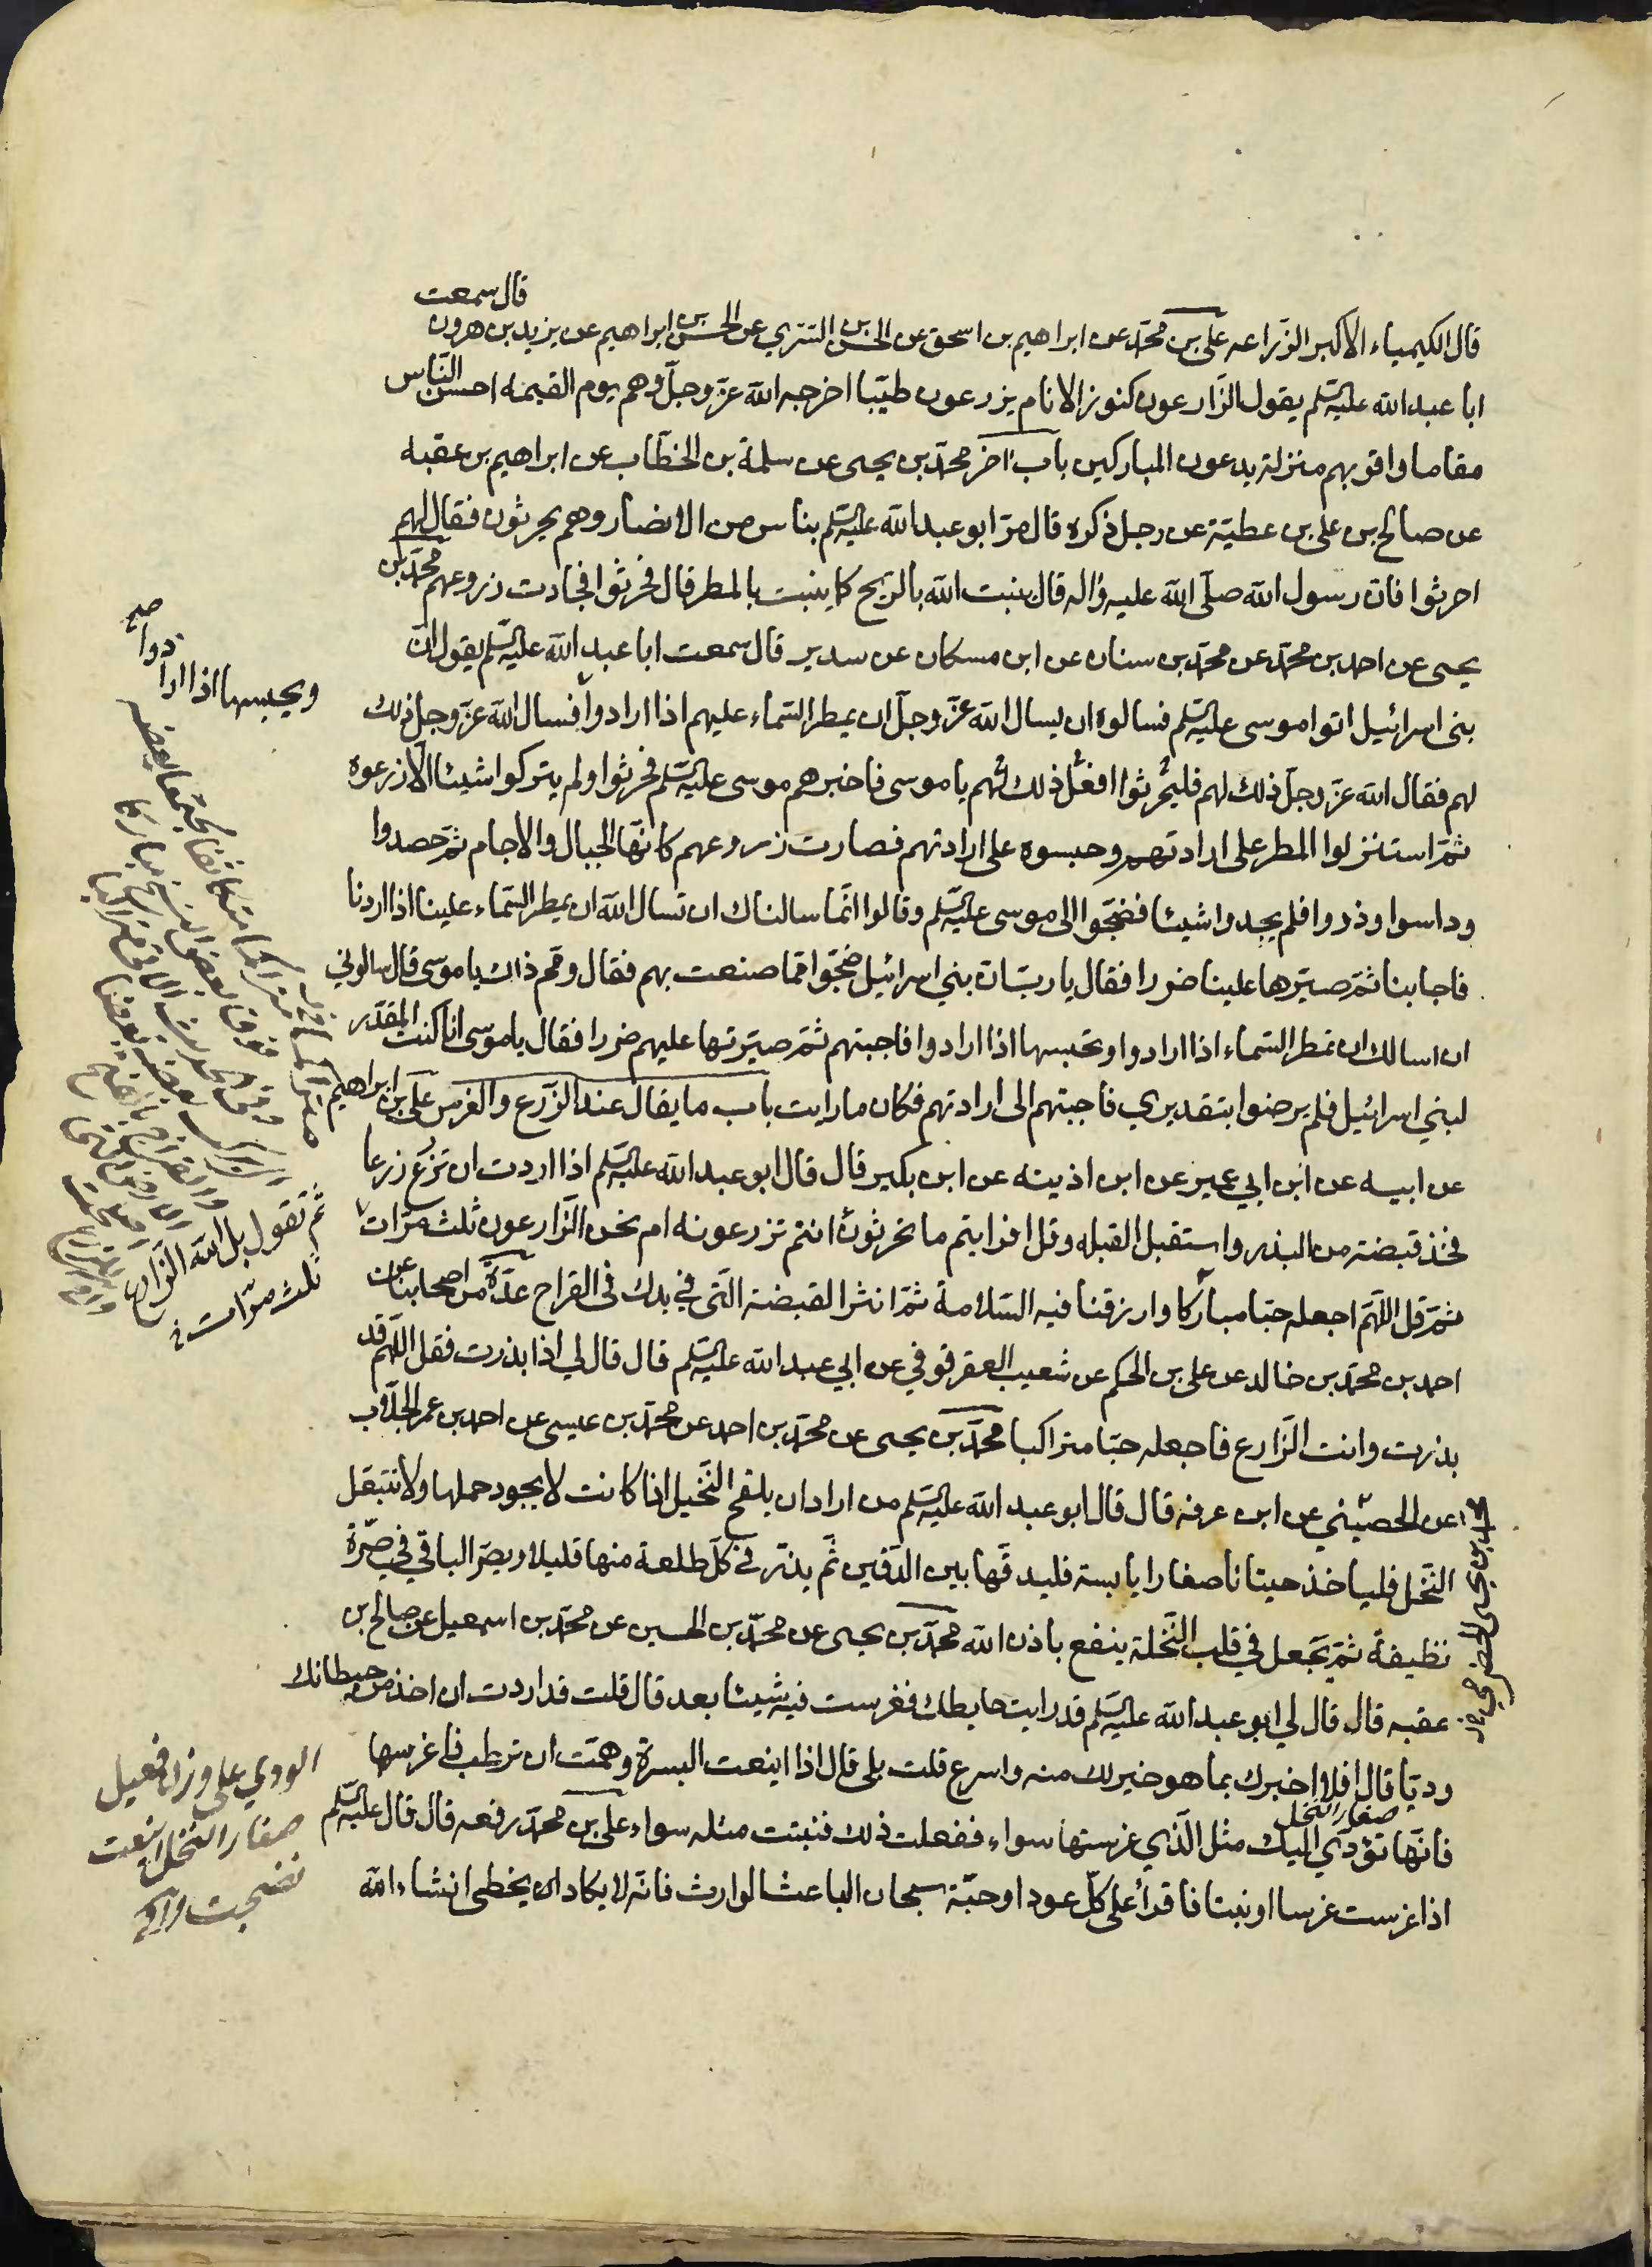 قال الكيمياء الاكبر الزراعه علي بن محمد عن ابراهيم بن اسحق عن الحسن بن السري عن الحسن بن ابراهيم عن يزيد بن هرون قال سمعت
ابا عبد الله عليه السلم يقول الزارعون كنوز الانام يزرعون طيبا اخرجه الله عز وجل وهم يوم القيمه احسن الناس
مقاما واقربهم منزلة يدعون المباركين باب اخر محمد بن يحيى عن سلمة بن الخطاب عن ابراهيم بن عقبه
عن صالح بن علي بن عطية عن رجل ذكره قال مر ابو عبد الله عليه السلم بناس من الانصار وهم يحرثون فقال لهم
احرثوا فان رسول الله صلى الله عليه واله قال ينبت الله بالريح كما ينبت بالمطر قال فحرثوا فجادت زروعهم محمد بن
يحيى عن احمد بن محمد عن محمد بن سنان عن ابن مسكان عن سدير قال سمعت ابا عبد الله عليه السلم يقول ان
بني اسرائيل اتوا موسى عليه السلم فسالوه ان يسال الله عز وجل ان يمطر السماء عليهم اذا ارادوا فسال الله عز وجل ذلك
لهم فقال الله عز وجل ذلك لهم فليحرثوا افعل ذلك لهم يا موسى فاخبرهم موسى عليه السلم فحرثوا ولم يتركوا شيئا الا زرعوه
ثم استنزلوا المطر على ارادتهم وحبسوه على ارادتهم فصارت زروعهم كانها الجبال والاجام ثم حصدوا
وداسوا وذروا فلم يجدوا شيئا فضجوا الى موسى عليه السلم وقالوا انما سالناك ان تسال الله ان يمطر السماء علينا اذا اردنا
فاجابنا ثم صيرها علينا ضررا فقال يا رب ان بني اسرائيل ضجوا مما صنعت بهم فقال ومم ذاك يا موسى قال سالوني
ان اسالك ان تمطر السماء اذا ارادوا وتحبسها اذا ارادوا فاجبتهم ثم صيرتها عليهم ضررا فقال يا موسى انا كنت المقدر
لبني اسرائيل فلم يرضوا بتقديري فاجبتهم الى ارادتهم فكان ما رايت باب ما يقال عند الزرع والغرس علي بن ابراهيم
عن ابيه عن ابن ابي عمير عن ابن اذينه عن ابن بكير قال قال ابو عبد الله عليه السلم اذا اردت ان تزرع زرعا
فخذ قبضة من البذر واستقبل القبله وقل افرايتم ما تحرثون اانتم تزرعونه ام نحن الزارعون ثلث مرات
ثم قل اللهم اجعله حبا مباركا وارزقنا فيه السلامة ثم انثر القبضة التي في يدك في القراح عدة من اصحابنا عن
احمد بن محمد بن خالد عن علي بن الحكم عن شعيب العقرقوفي عن ابي عبد الله عليه السلم قال قال لي اذا بذرت فقل اللهم قد
بذرت وانت الزارع فاجعله حبا متراكبا محمد بن يحيى عن محمد بن احمد عن محمد بن عيسى عن احمد بن عمر الجلاب
عن الحصيني عن ابن عرفه قال قال ابو عبد الله عليه السلم من اراد ان يلقح النخيل اذا كانت لا يجود حملها ولا تتبقل
النخل فلياخذ حيتانا صغارا يابسة فليدقها بين الدقين ثم يذر في كل طلعة منها قليلا ويصر الباقي في صرة
نظيفة ثم يجعل في قلب النخلة ينفع باذن الله محمد بن يحيى عن محمد بن الحسين عن محمد بن اسمعيل عن صالح بن
عقبه قال قال لي ابو عبد الله عليه السلم قد رايت حايطك فغرست فيه شيئا بعد قال قلت قد اردت ان اخذ من حيطانك
وديا قال افلا اخبرك بما هو خير لك منه واسرع قلت بلى قال اذا اينعت البسرة وهمت ان ترطب فاغرسها
صغار النخل
فانها تؤدي اليك مثل الذي غرستها سواء ففعلت ذلك فنبتت مثله سواء علي بن محمد رفعه قال قال عليه السلم
اذا غرست غرسا او نبتا فاقرا على كل عود او حبة سبحان الباعث الوارث فانه لا يكاد ان يخطى انشاء الله
ويحبسها اذا ارادوا صح
ثم تقول بل الله الزارع
ثلث مرات
الودي على وزن فعيل
صغار النخل اينعت
نضجت